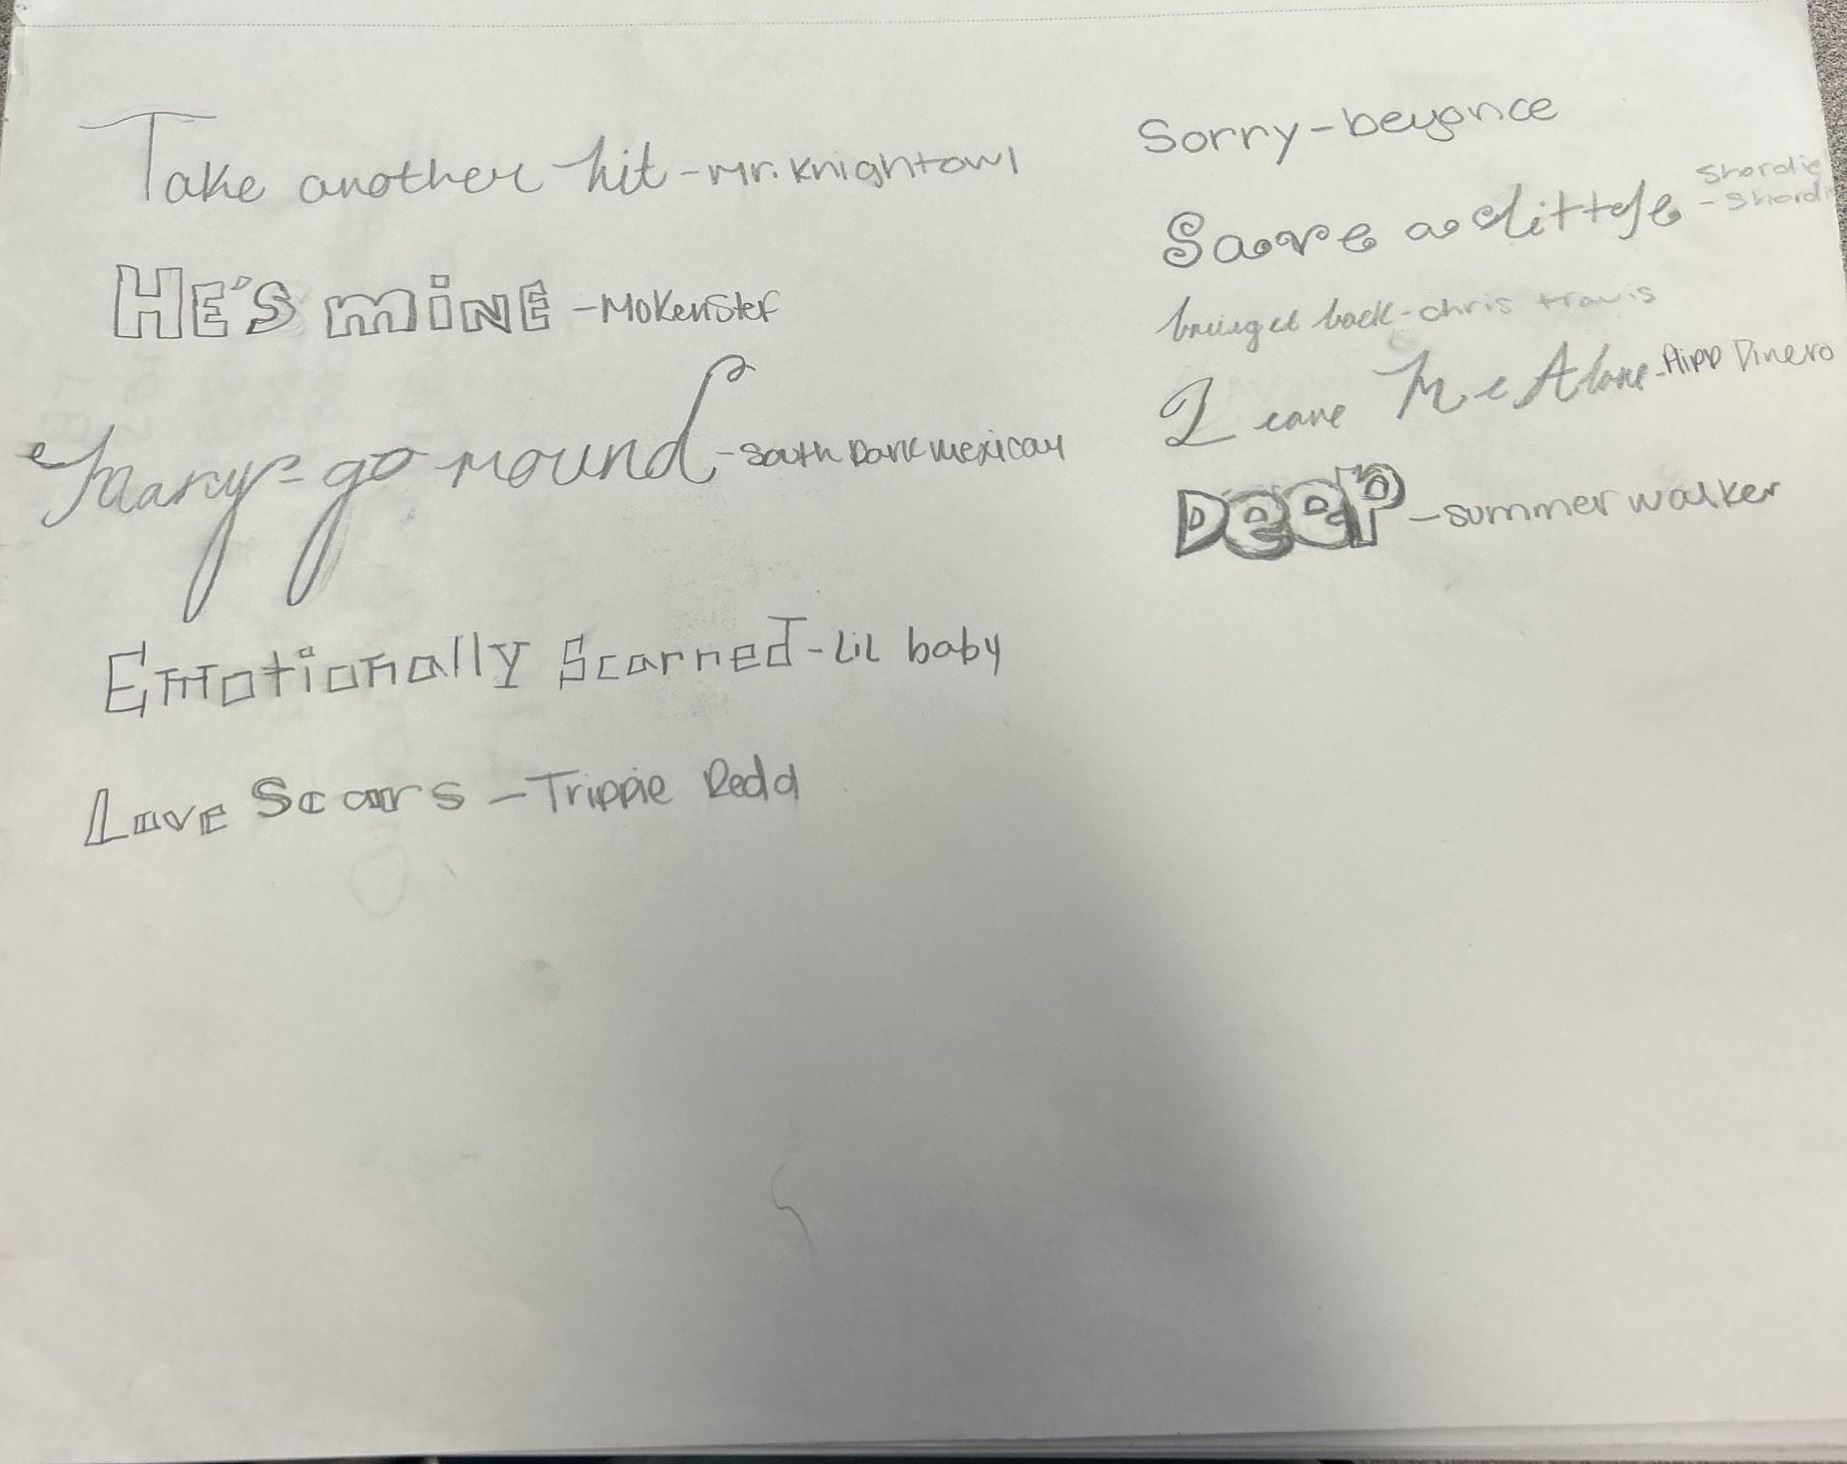 Take another hit - Mr. Knightowl
HE'S miNE - MoKenStef
Mary-go round - South Park Mexican
Emotionally Scarred - Lil baby
Love Scars - Trippie Redd
Sorry - beyonce
Save a little - Shordie Shordie
bruised back - chris travis
Leave Me Alone - Flipp Dinero
DeeP - summer walker